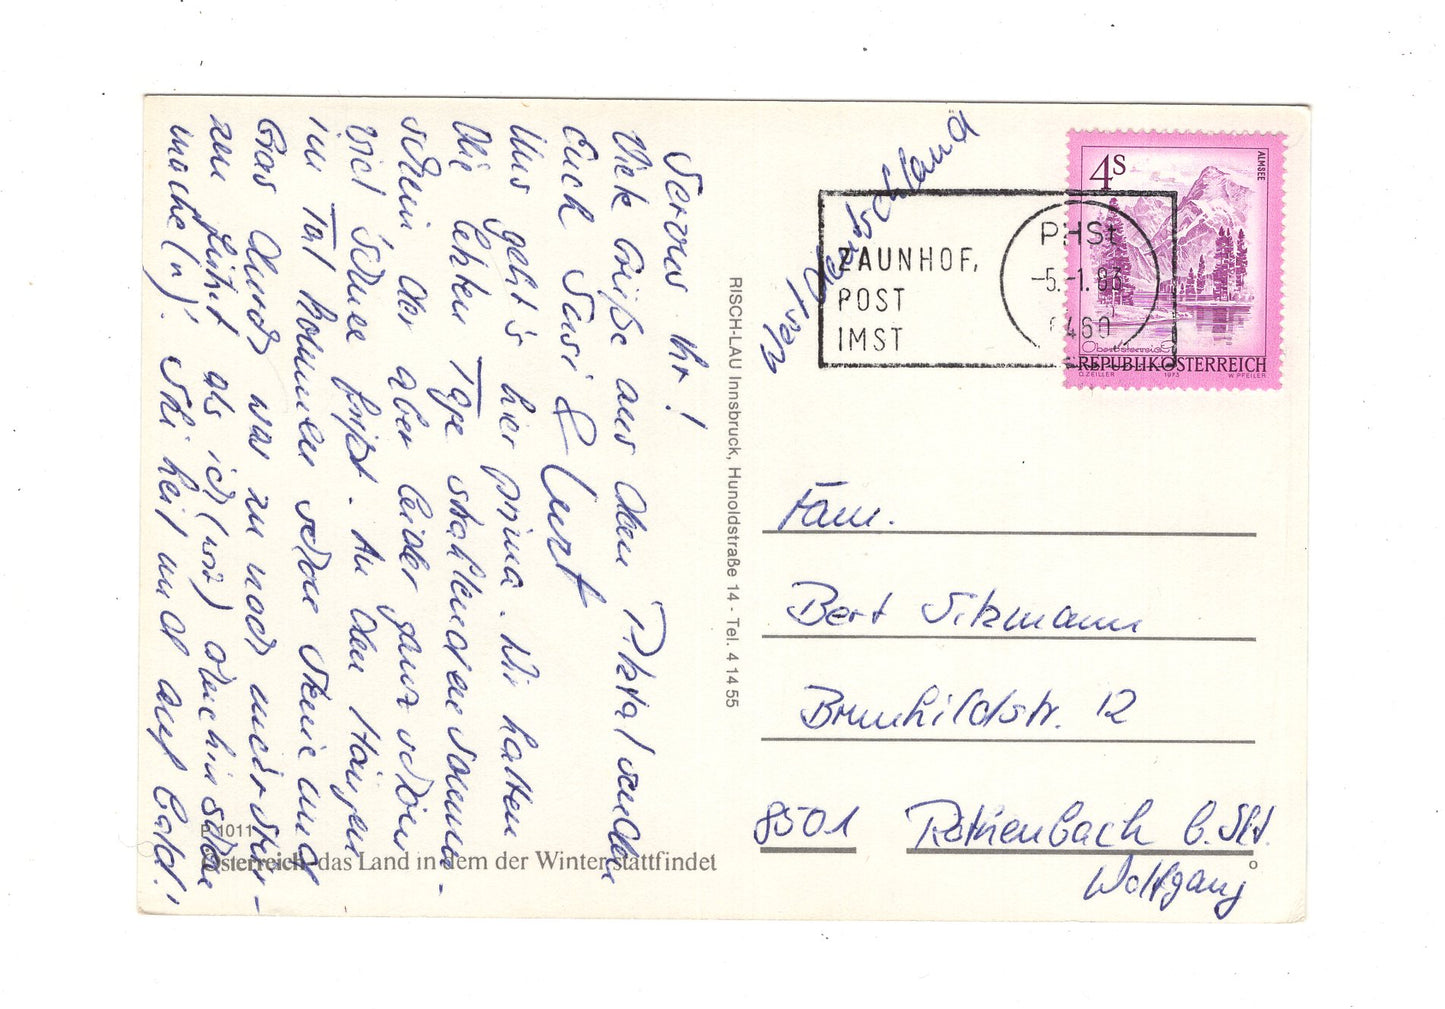 Servus Ihr!
Viele Grüße aus dem Pitztal senden
Euch Susi & Curt
Uns geht's hier prima. Wir hatten
die letzten Tage strahlenden Sonnen-
schein der aber leider ganz schön
viel Schnee frißt. An den Hängen
im Tal kommen schon Steine und
Gras durch was zu noch mehr Stür-
zen führt als ich (wir) ohnehin schon
mache(n)! Ski heil und auf bald!
P 1011
Österreich-das Land in dem der Winter stattfindet
RISCH-LAU Innsbruck, Hunoldstraße 14 - Tel. 4 14 55
Westdeutschland
ZAUNHOF,
POST
IMST
PHSt
-5.-1.83
6460
4S
ALMSEE
Oberösterreich
REPUBLIK ÖSTERREICH
O.ZEILLER 1973 W.PFEILER
Fam.
Bert Sitzmann
Brunhildstr. 12
8501 Röthenbach b. Skt.
Wolfgang